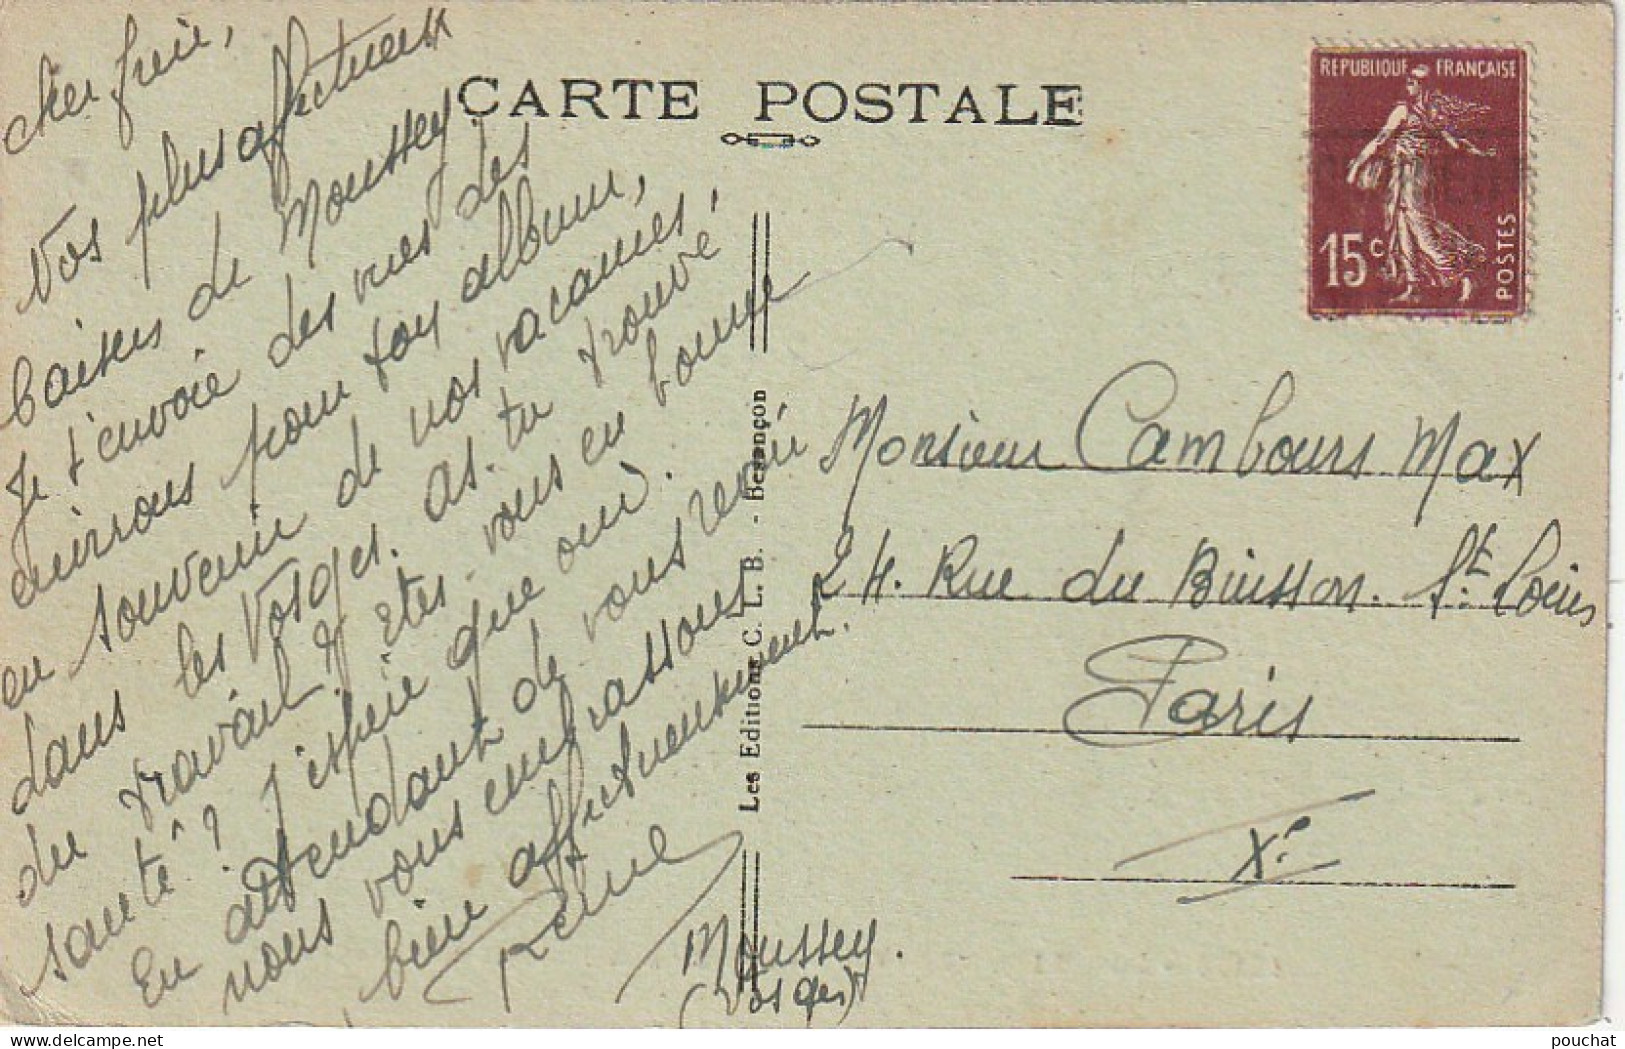 CARTE POSTALE
REPUBLIQUE FRANÇAISE
15c
POSTES
Cher frère,
Vos plus affectueux
baisers de Moussey.
Je t'envoie des vues des
environs pour ton album,
en souvenir de nos vacances,
dans les Vosges. As-tu trouvé
du travail? Êtes-vous en bonne
santé? J'espère que oui.
En attendant de vous revoir
nous vous embrassons
bien affectueusement.
Moussey.
(Vosges)
Les Editions C. L. B. - Besançon
Monsieur Cambours Max
24. Rue du Buisson. St. Louis
Paris
Xe
pouchat